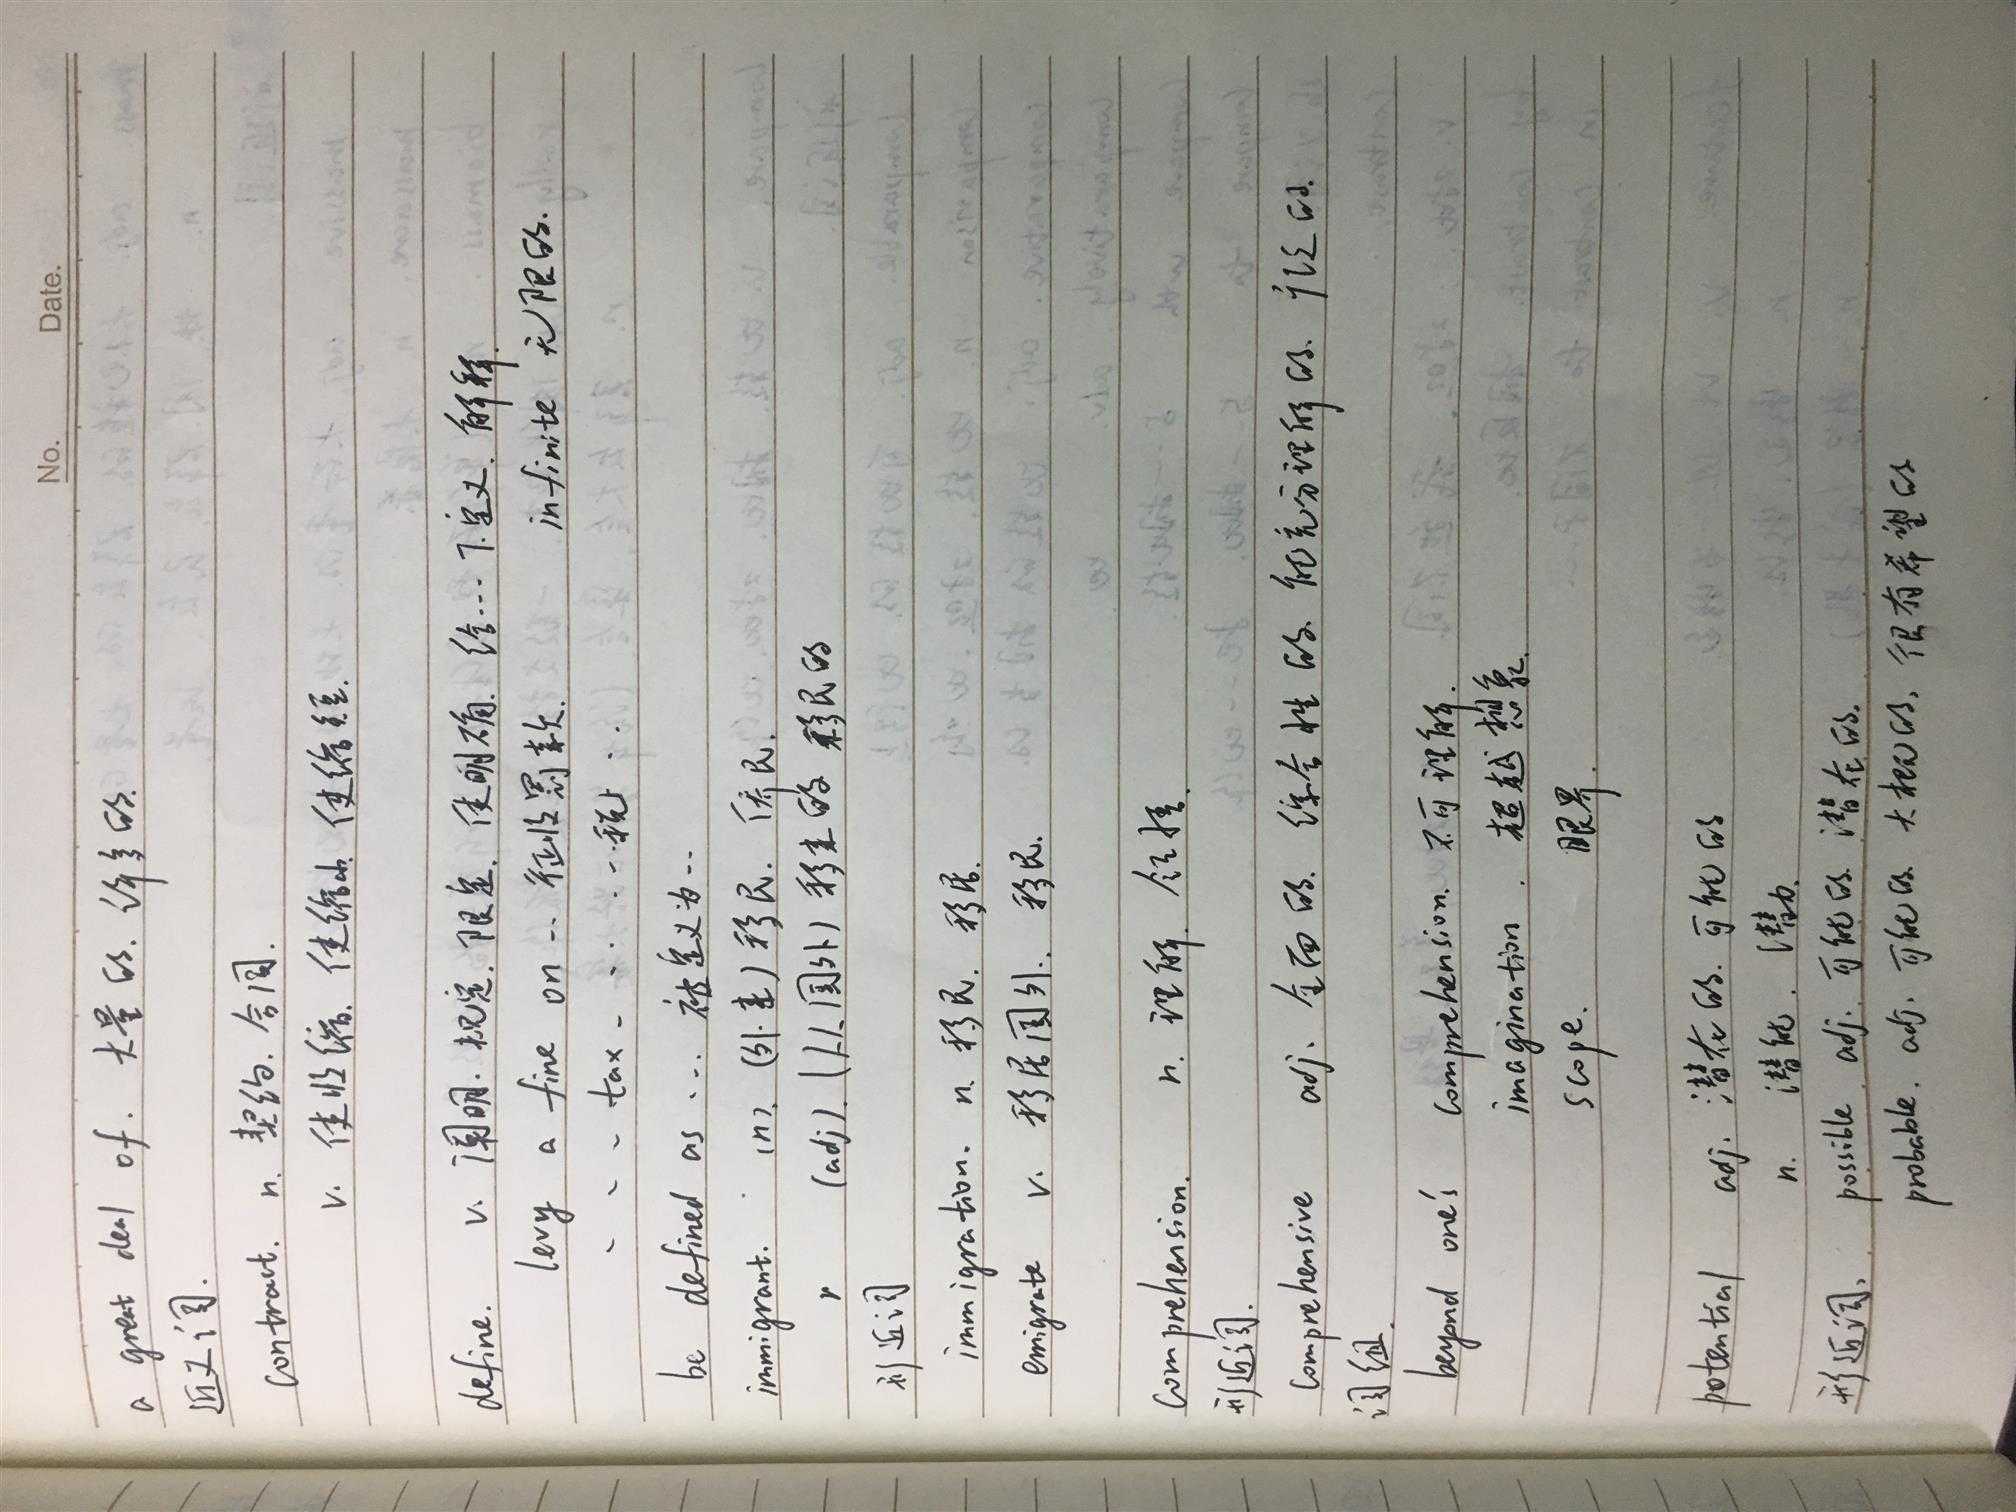 No. Date.
a great deal of. 大量的. 许多的.
近义词.
contract. n. 契约. 合同.
v. 使收缩. 使缩小. 使缩短.
define. v. 阐明. 规定. 限定. 使明确. 给...下定义. 解释.
levy a fine on -- 征收罚款. infinite 无限的.
~ ~ tax ~ ~ ~ 税.
be defined as ... 被定义为--
immigrant. (n). (外来) 移民. 侨民.
〃 (adj). (从国外) 移来的 移民的
形近词
immigration. n. 移民. 移居.
emigrate v. 移居国外. 移民.
comprehension. n. 理解. 包括
形近词.
comprehensive adj. 全面的. 综合性的. 能充分理解的. 广泛的.
词组.
beyond one's comprehension. 不可理解.
imagination. 超越想象.
scope. 眼界.
potential adj. 潜在的. 可能的
n. 潜能. 潜力.
形近词. possible adj. 可能的. 潜在的.
probable. adj. 可能的. 大概的. 很有希望的